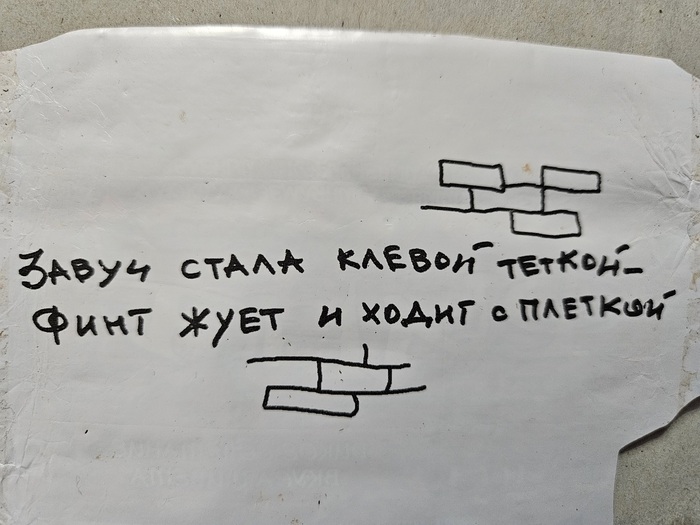 ЗАВУЧ СТАЛА КЛЕВОЙ ТЕТКОЙ-
ФИНТ ЖУЕТ И ХОДИТ С ПЛЕТКОЙ